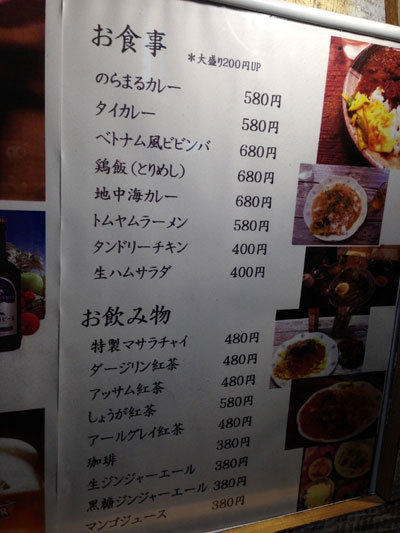 お食事
＊大盛り200円UP
のらまるカレー 580円
タイカレー 580円
ベトナム風ビビンバ 680円
鶏飯（とりめし） 680円
地中海カレー 680円
トムヤムラーメン 580円
タンドリーチキン 400円
生ハムサラダ 400円
お飲み物
特製マサラチャイ 480円
ダージリン紅茶 480円
アッサム紅茶 480円
しょうが紅茶 580円
アールグレイ紅茶 480円
珈琲 380円
生ジンジャーエール 380円
黒糖ジンジャーエール 380円
マンゴジュース 380円